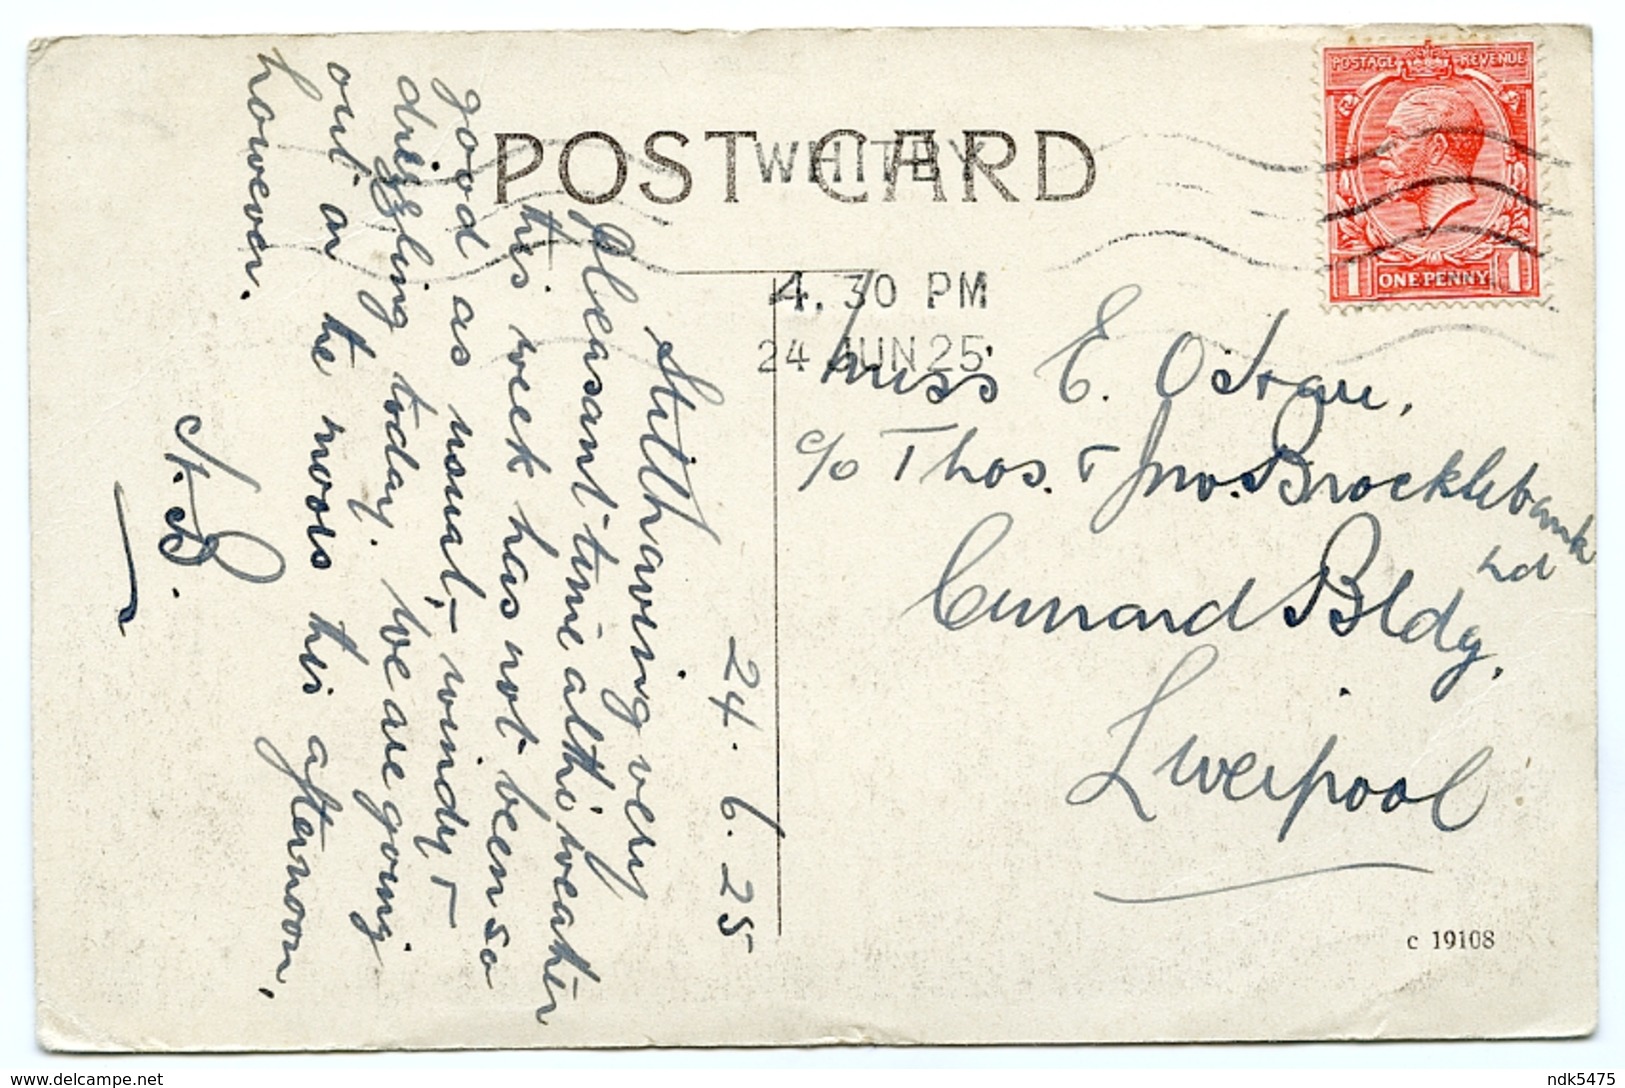 POST CARD
WHITBY
4. 30 PM
24 JUN 25
POSTAGE REVENUE
1 ONE PENNY 1
24. 6. 25
Still having very
pleasant time altho' weather
this week has not been so
good as usual, - windy &
drizzling today. We are going
out on the moors this afternoon,
however.
Miss E.
c/o Thos. & Jno. Brocklebank
Ltd
Cunard Bldg,
Liverpool
c 19108
ndk5475